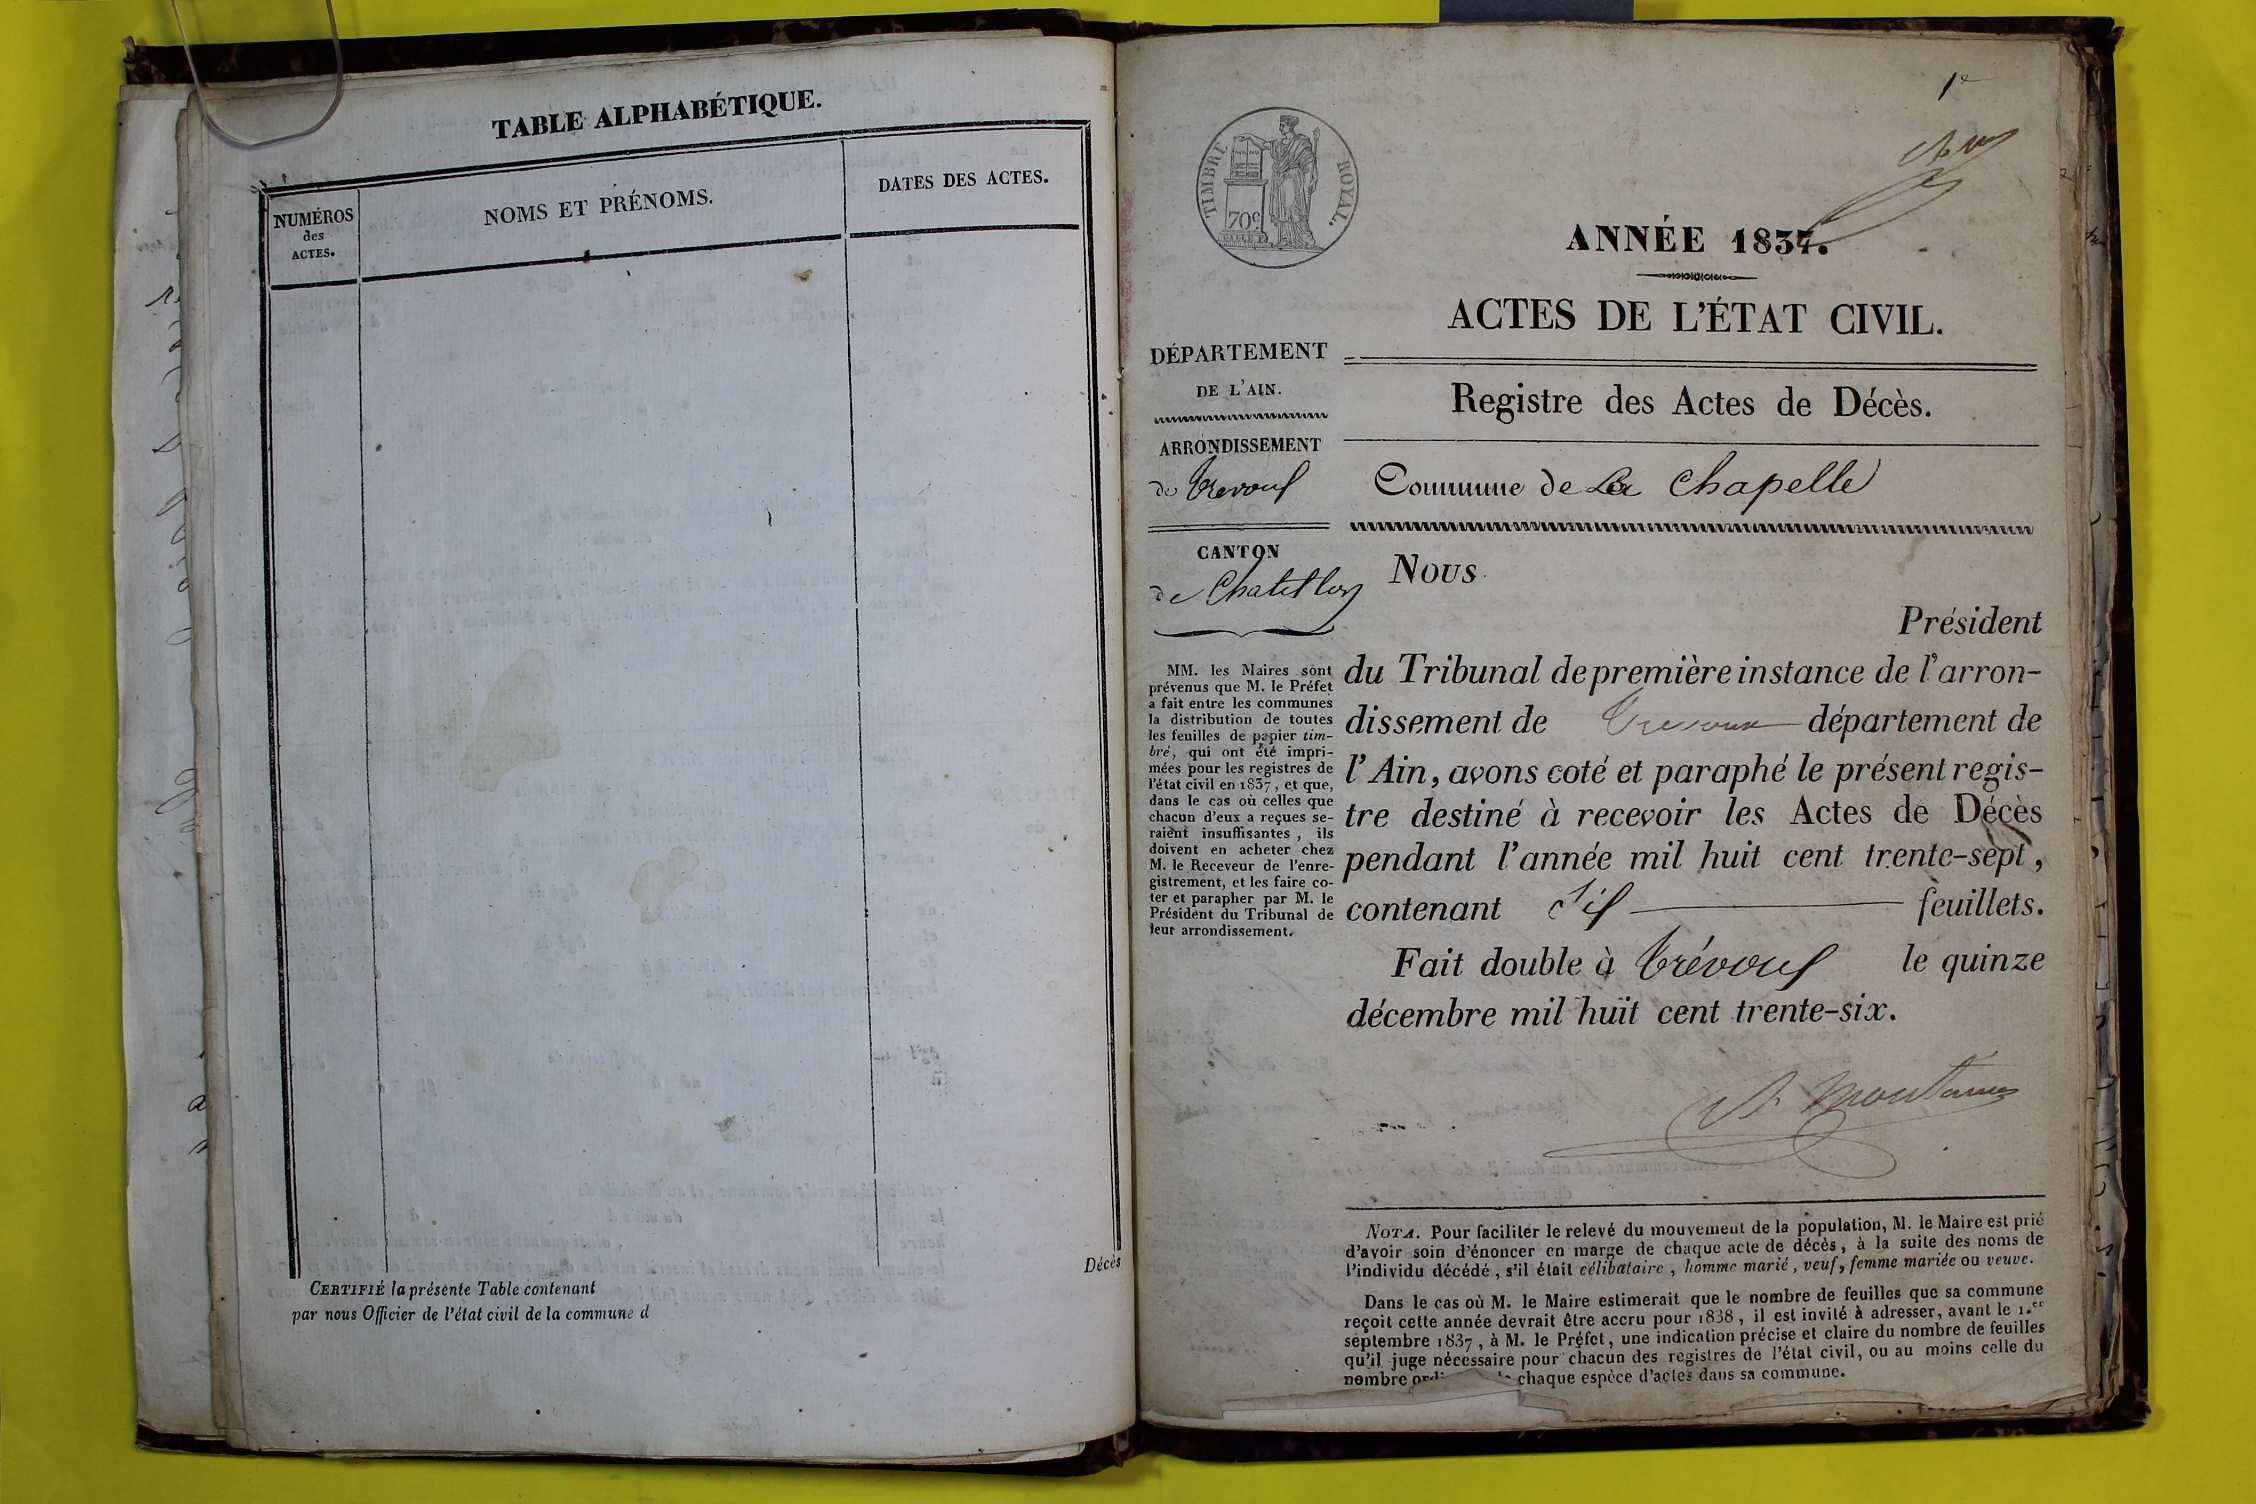 TABLE ALPHABÉTIQUE.
NUMÉROS
des
ACTES.
NOMS ET PRÉNOMS.
DATES DES ACTES.
Décès
CERTIFIÉ la présente Table contenant
par nous Officier de l'état civil de la commune d
1e
TIMBRE ROYAL.
70c
ANNÉE 1837.
ACTES DE L'ÉTAT CIVIL.
DÉPARTEMENT
DE L'AIN.
ARRONDISSEMENT
de Trevoux
CANTON
de Chatillon
MM. les Maires sont
prévenus que M. le Préfet
a fait entre les communes
la distribution de toutes
les feuilles de papier tim-
bré, qui ont été impri-
mées pour les registres de
l'état civil en 1837, et que,
dans le cas où celles que
chacun d'eux a reçues se-
raient insuffisantes, ils
doivent en acheter chez
M. le Receveur de l'enre-
gistrement, et les faire co-
ter et parapher par M. le
Président du Tribunal de
leur arrondissement.
Registre des Actes de Décès.
Commune de La Chapelle
Nous
Président
du Tribunal de première instance de l'arron-
dissement de Trevoux département de
l'Ain, avons coté et paraphé le présent regis-
tre destiné à recevoir les Actes de Décès
pendant l'année mil huit cent trente-sept,
contenant Six feuillets.
Fait double à Trévoux le quinze
décembre mil huit cent trente-six.
NOTA. Pour faciliter le relevé du mouvement de la population, M. le Maire est prié
d'avoir soin d'énoncer en marge de chaque acte de décès, à la suite des noms de
l'individu décédé, s'il était célibataire, homme marié, veuf, femme mariée ou veuve.
Dans le cas où M. le Maire estimerait que le nombre de feuilles que sa commune
reçoit cette année devrait être accru pour 1838, il est invité à adresser, avant le 1.er
septembre 1837, à M. le Préfet, une indication précise et claire du nombre de feuilles
qu'il juge nécessaire pour chacun des registres de l'état civil, ou au moins celle du
nombre chaque espèce d'actes dans sa commune.